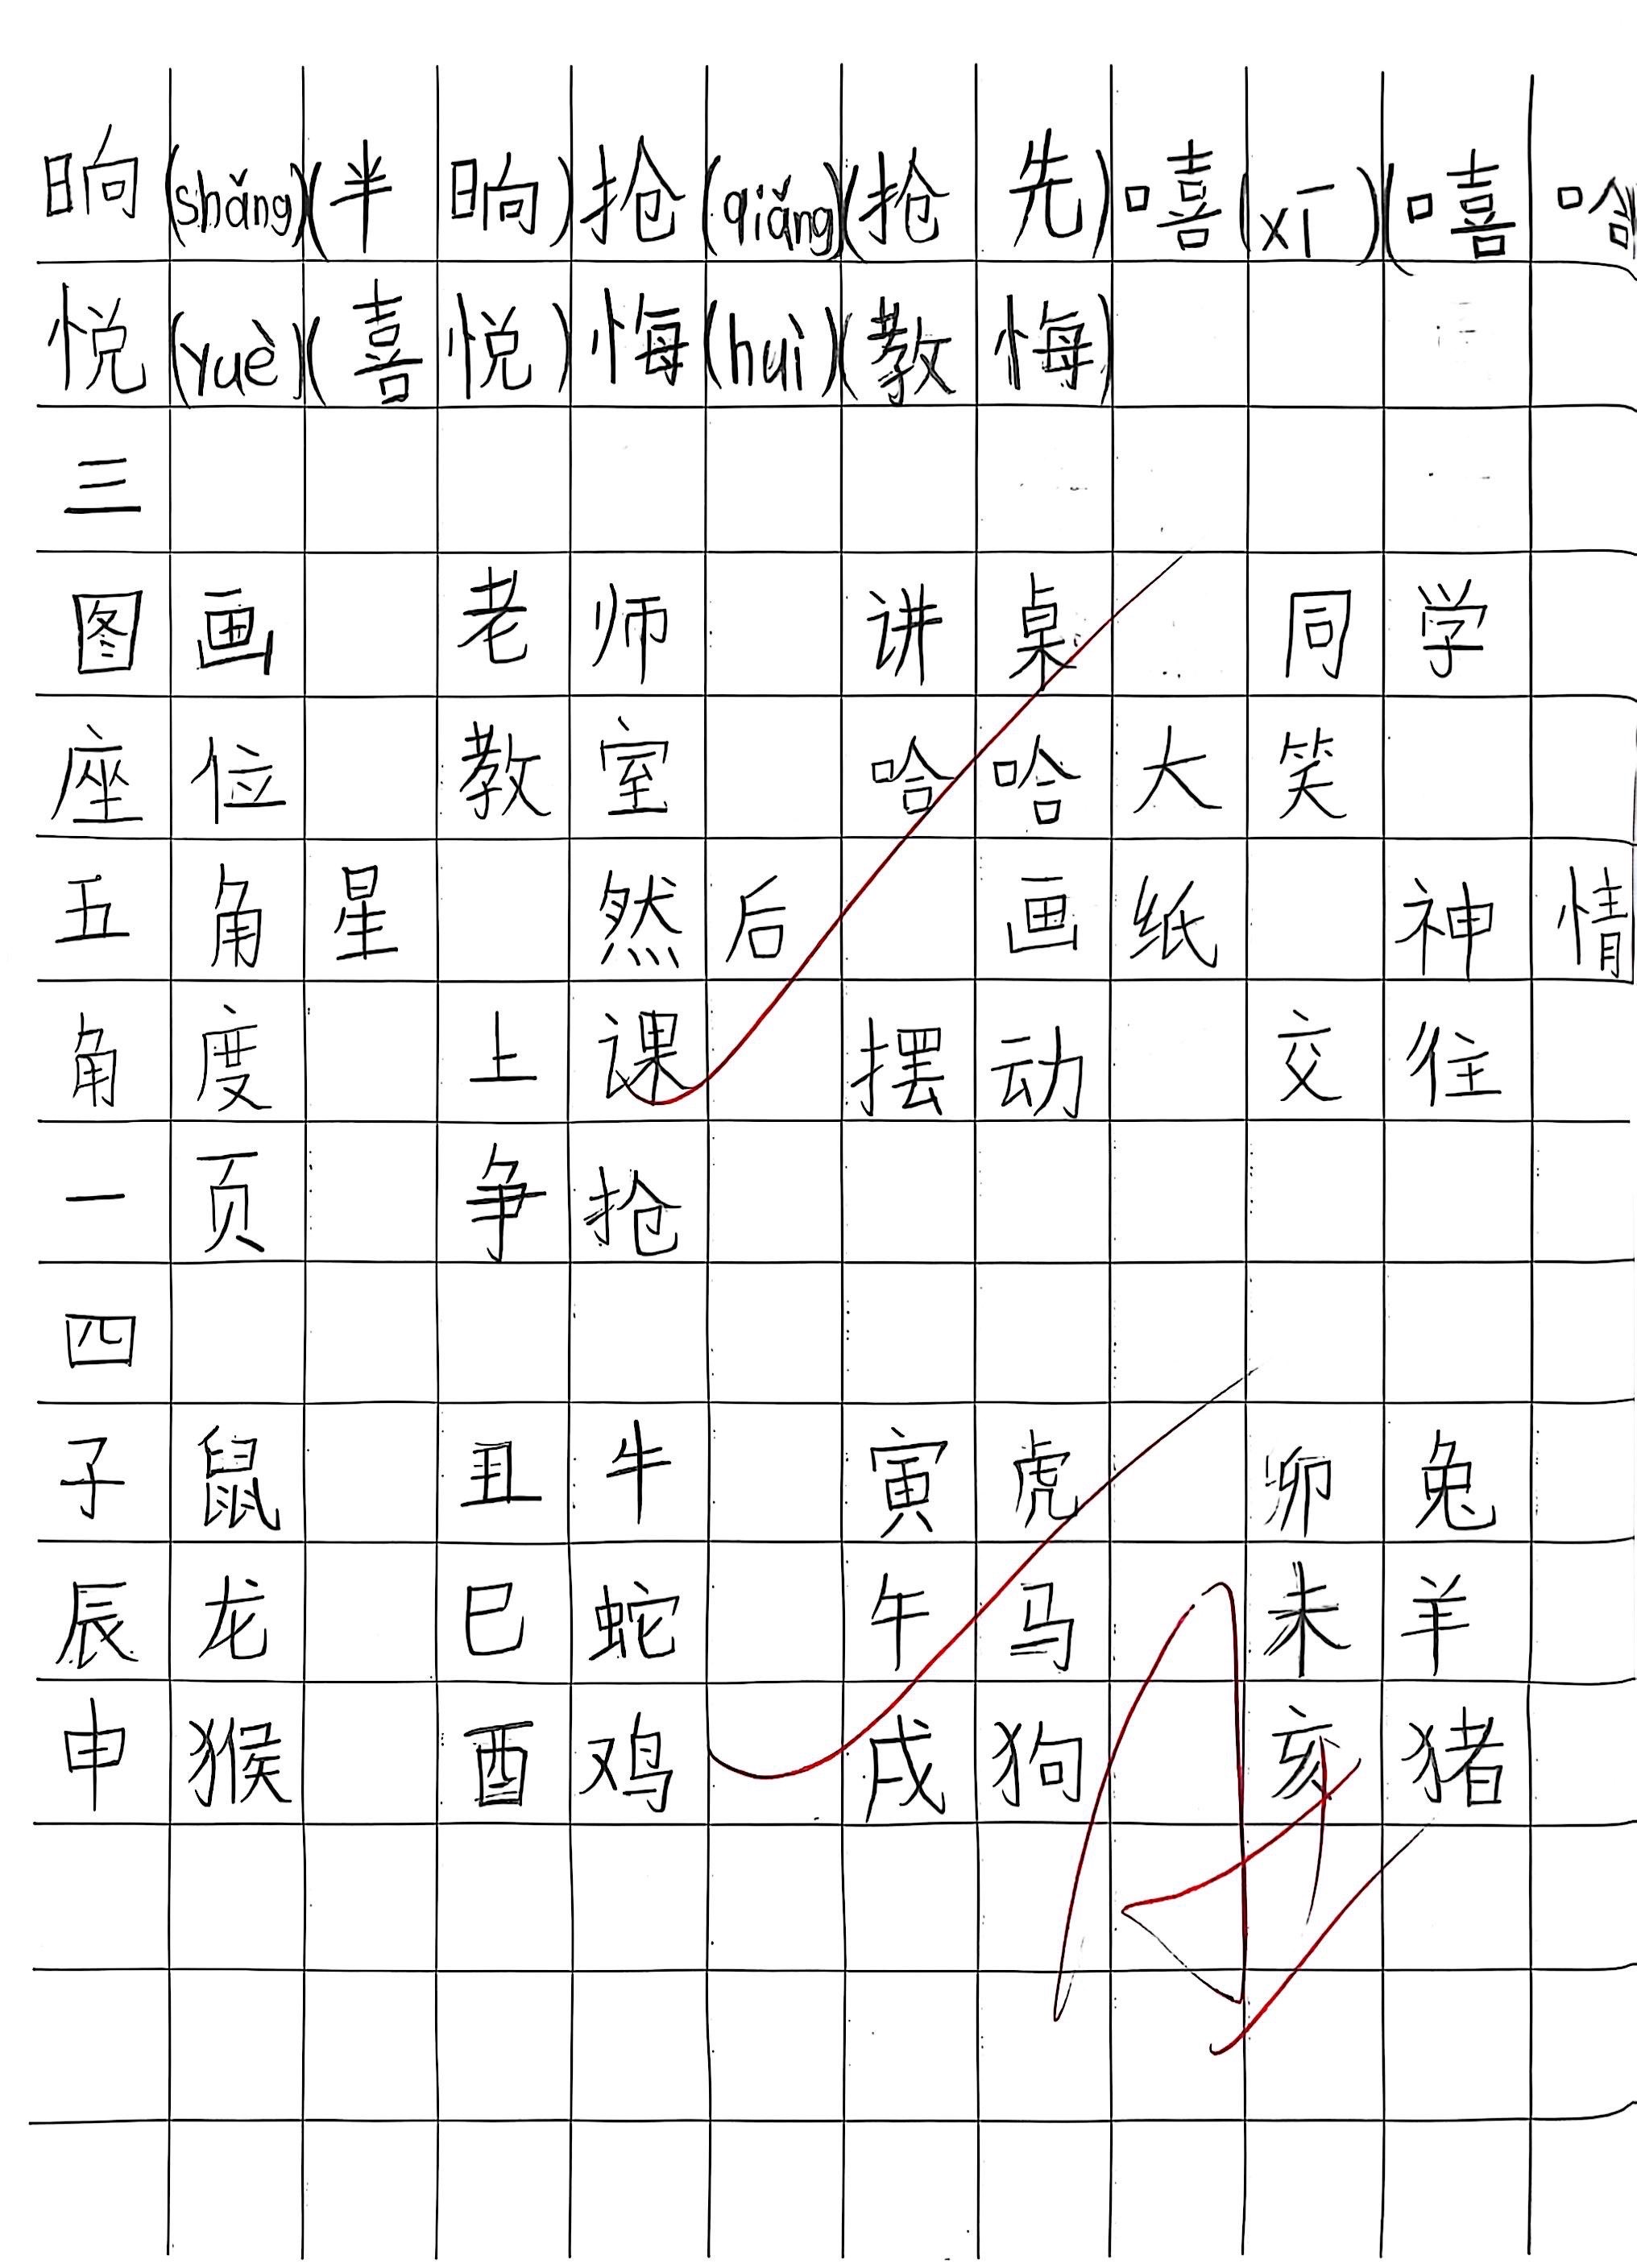 晌(shǎng)(半晌)抢(qiǎng)(抢先)嘻(xī)(嘻哈
悦(yuè)(喜悦)悔(huì)(教悔)
三
图画 老师 讲桌 同学
座位 教室 哈哈大笑
五角星 然后 画纸 神情
角度 上课 摆动 交往
一页 争抢
四
子鼠 丑牛 寅虎 卯兔
辰龙 巳蛇 午马 未羊
申猴 酉鸡 戌狗 亥猪